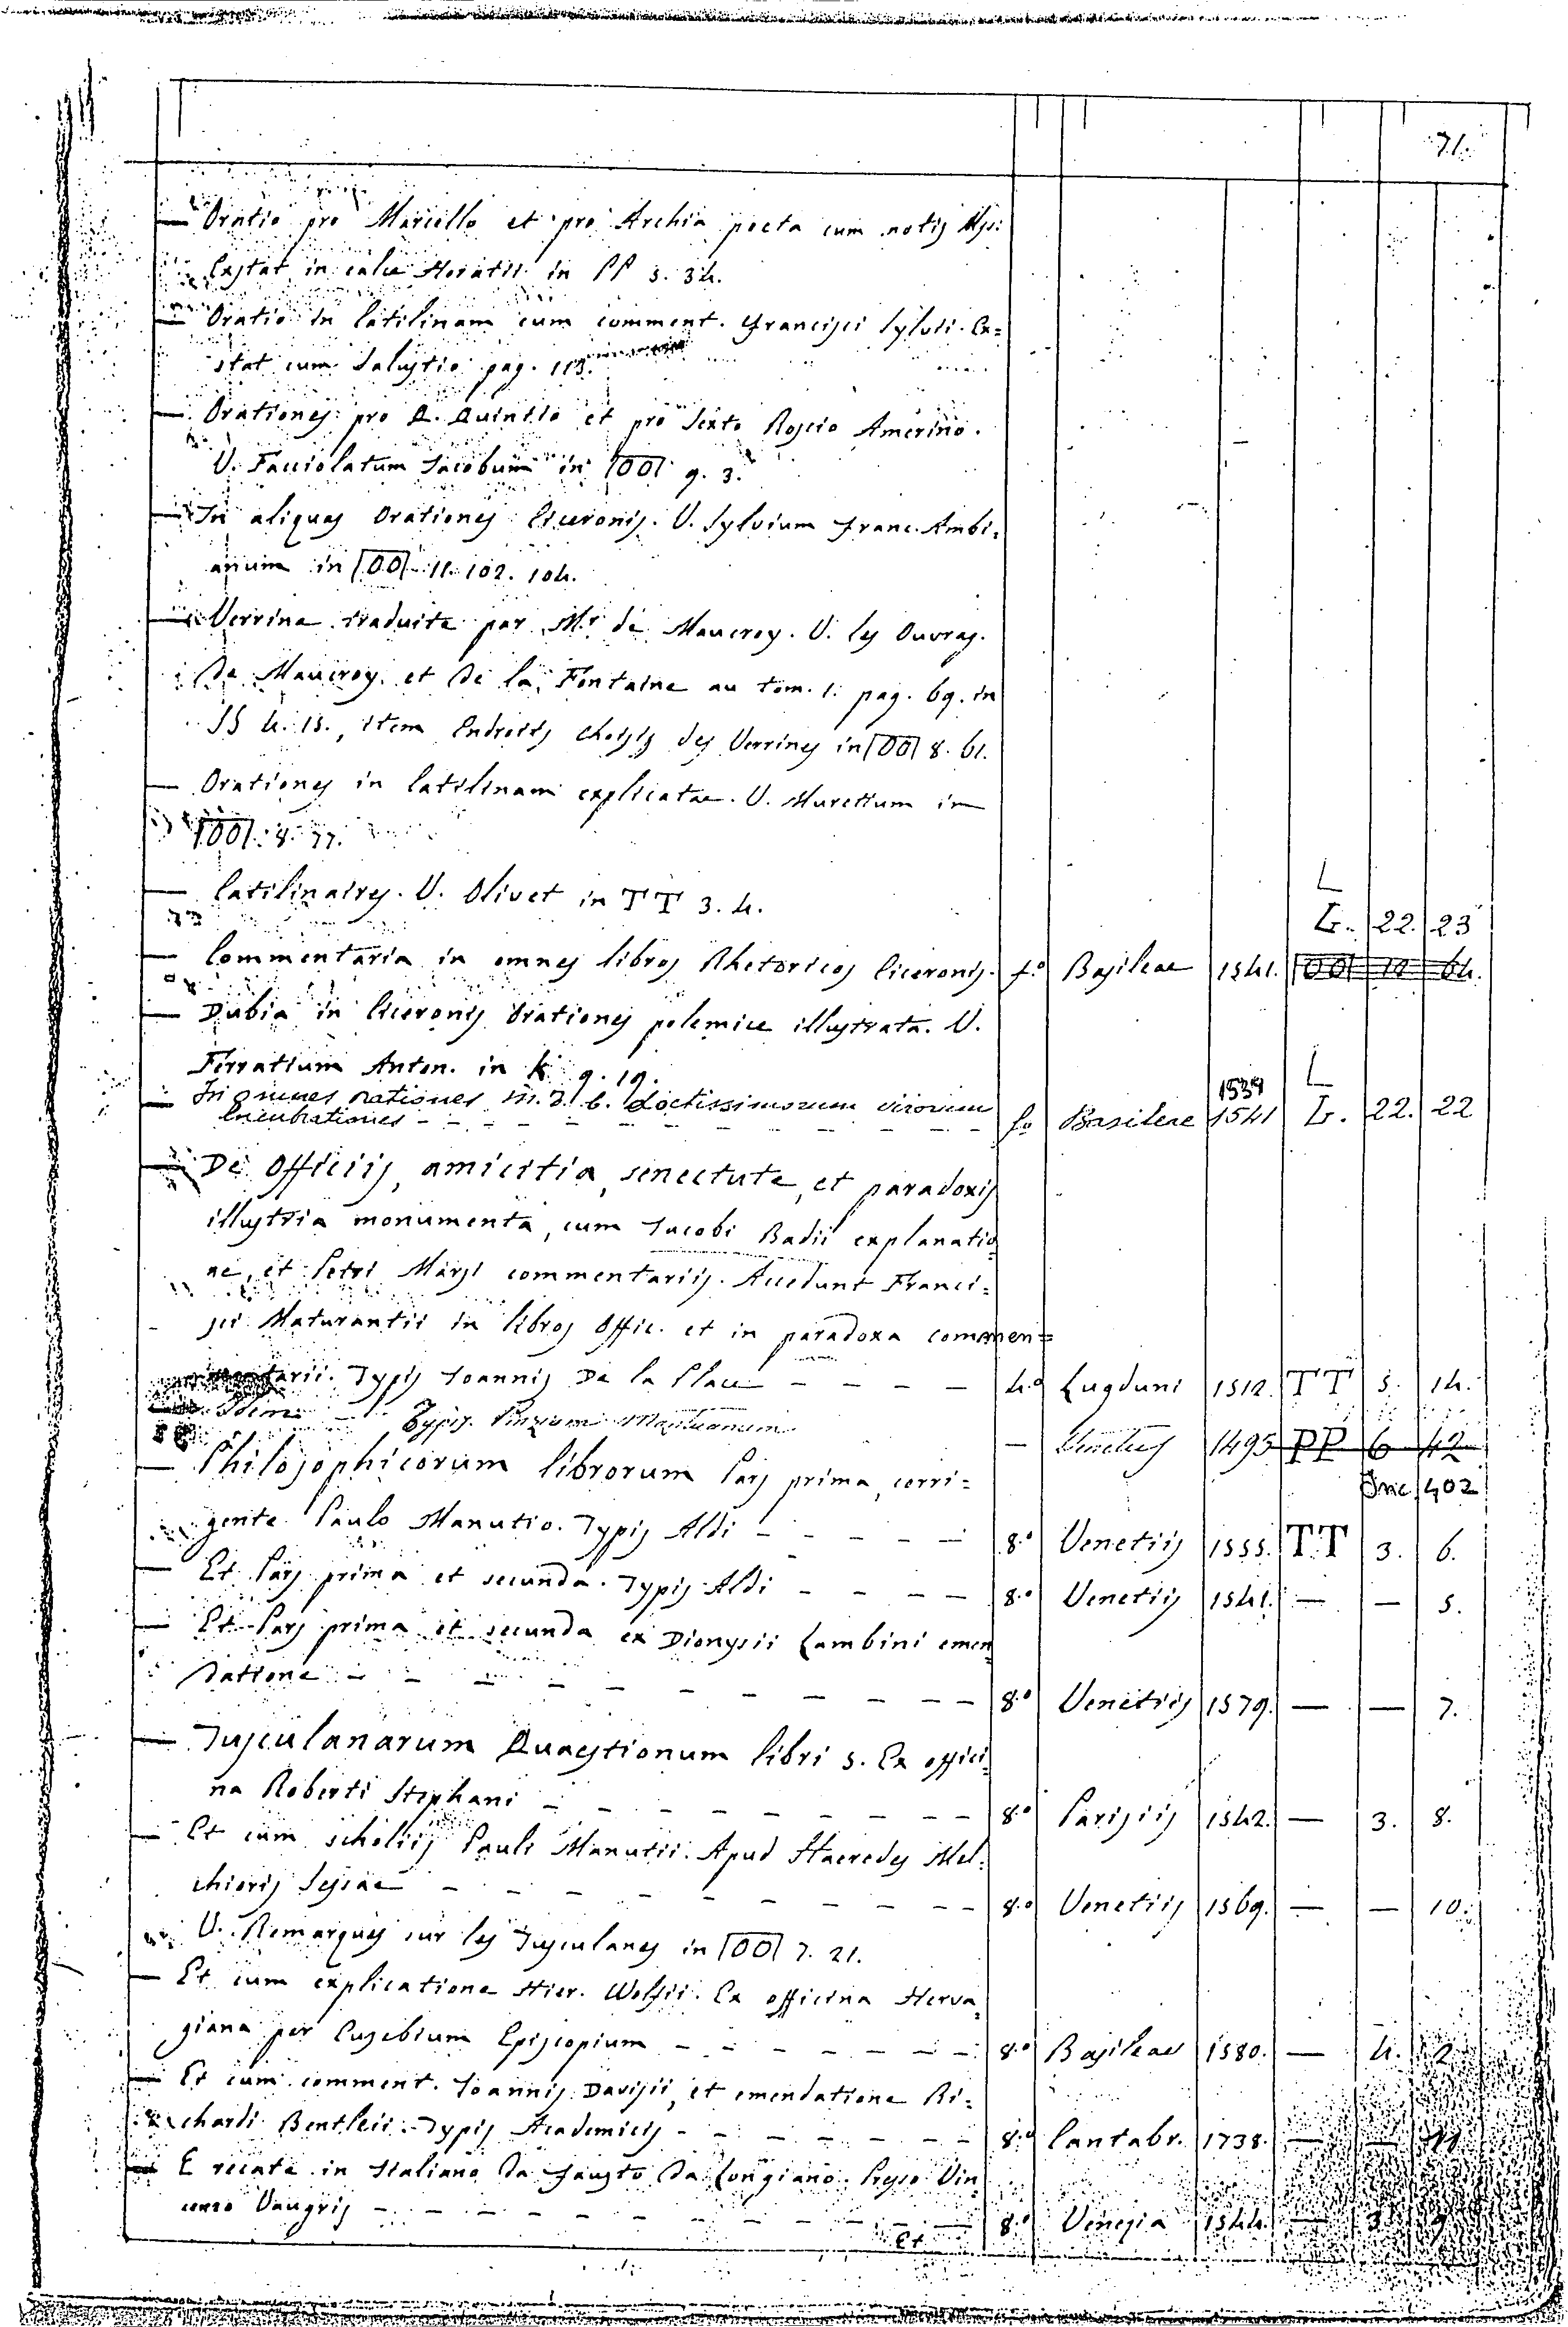 71.
— Oratio pro Marcello et pro Archia poeta cum notis Mss:
Exstat in calce Horatii in PP 5. 34.
— Oratio in Catilinam cum comment. Francisci Sylvii. Ex=
stat cum Salustio pag. 113.
— Orationes pro Q. Quintio et pro Sexto Roscio Amerino.
V. Facciolatum Jacobum in OO 9. 3.
— In aliquas Orationes Ciceronis. V. Sylvium Franc. Ambi=
anum in OO 11. 102. 104.
— Verrine traduite par Mr. de Maucroy. V. les Ouvras.
de Maucroy et de la Fontaine au tom. 1. pag. 69. in
SS 4. 15., item Endroits choisis des Verrines in OO 8. 61.
— Orationes in Catilinam explicatae. V. Muretium in
OO 8. 77.
— Catilinaires. V. Olivet in TT 3. 4.
L
L. 22. 23
— Commentaria in omnes libros Rhetoricos Ciceronis. f.o Basileae 1541. OO 12 64.
— Dubia in Ciceronis Orationes polemice illustrata. V.
Ferratium Anton. in K 9. 19.
1539 L
— In omnes orationes M. T. C. doctissimorum virorum
lucubrationes - - - fo Basileae 1541 L. 22. 22
— De Officiis, amicitia, senectute, et paradoxis
illustria monumenta, cum Jacobi Badii explanatio=
ne, et Petri Marsi commentariis. Accedunt Franci=
sci Maturantii in libros Offic. et in paradoxa commen=
mentarii. Typis Joannis De la Place - - - - 4.o Lugduni 1512. TT 5. 14.
— Idem - Typis. Pinzium Mantuanum — Venetiis 1495 PP 6 42
Inc. 402
— Philosophicorum librorum Pars prima, corri=
gente Paulo Manutio. Typis Aldi - - - - 8.o Venetiis 1555. TT 3. 6.
— Et Pars prima et secunda. Typis Aldi - - - - 8.o Venetiis 1541. — — 5.
— Et Pars prima et secunda ex Dionysii Lambini emen
datione - - - - - - - - 8.o Venetiis 1579. — — 7.
— Tusculanarum Quaestionum libri 5. Ex offici=
na Roberti Stephani - - - - - - 8.o Parisiis 1542. — 3. 8.
— Et cum scholiis Pauli Manutii. Apud Haeredes Mel=
chioris Sessae - - - - - - - - 8.o Venetiis 1569. — — 10.
V. Remarques sur les Tusculanes in OO 7. 21.
— Et cum explicatione Hier. Wolfii. Ex officina Herva=
giana per Eusebium Episcopium - - - - - - 8.o Basileae 1580. — 4. 2
— Et cum comment. Joannis Davisii, et emendatione Ri=
chardi Bentleii. Typis Academicis - - - - - 8.o Cantabr. 1738. — — 11
— E recate in Italiano da Fausto da Longiano. Presso Vin
cenzo Vaugris - - - - - - - - 8.o Venezia 1544. — 3 9
Et